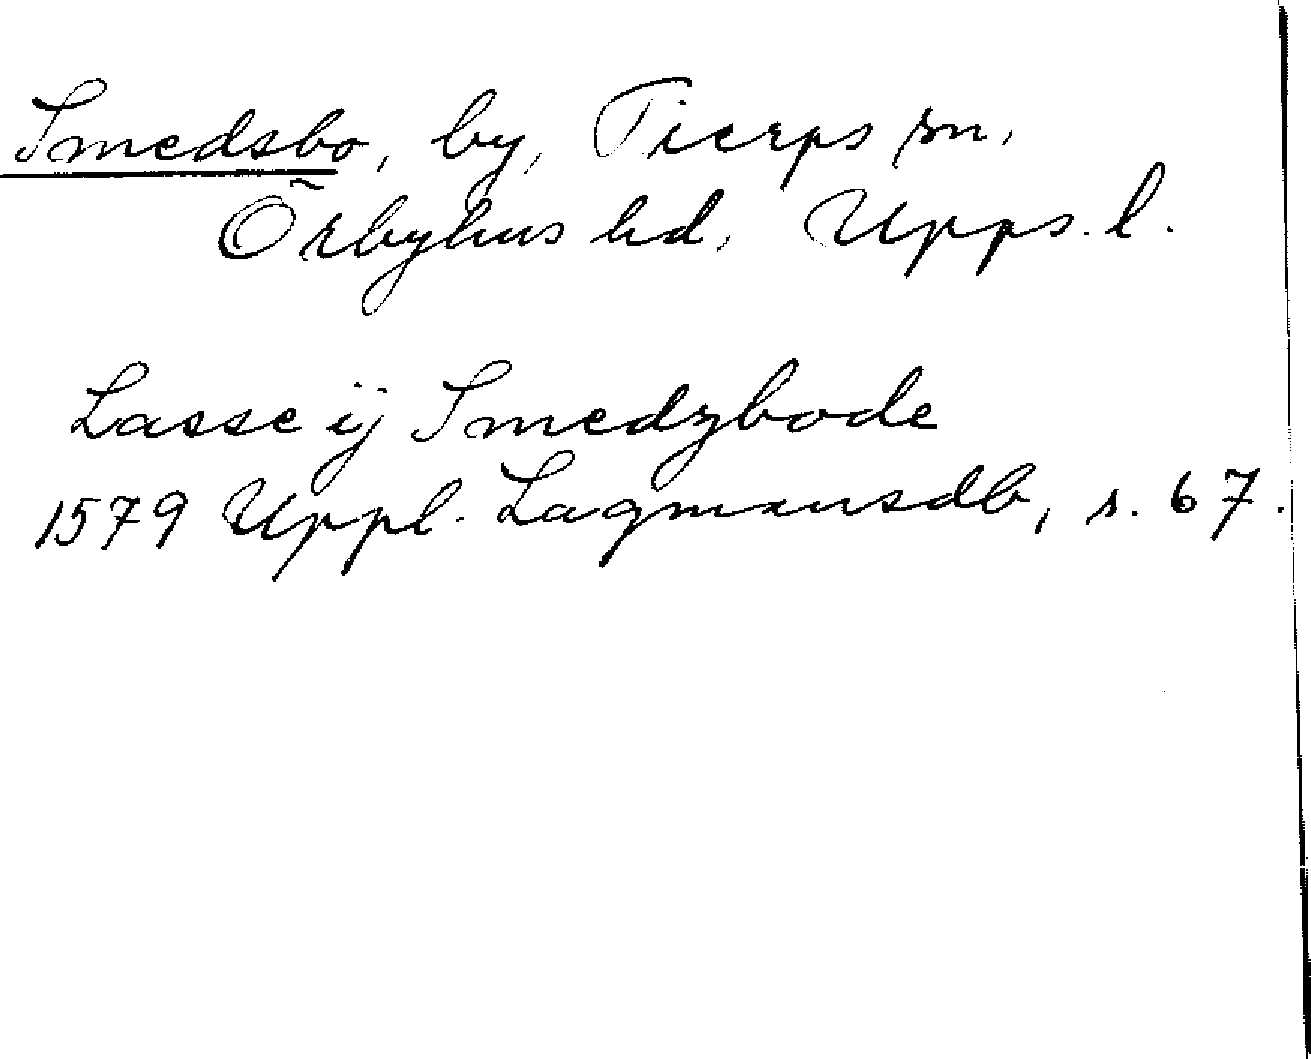 Smedsbo, by, Tierps sn,
Örbyhus hd, Upps. l.
Lasse ij Smedzbode
1579 Uppl. Lagmansdb, s. 67.